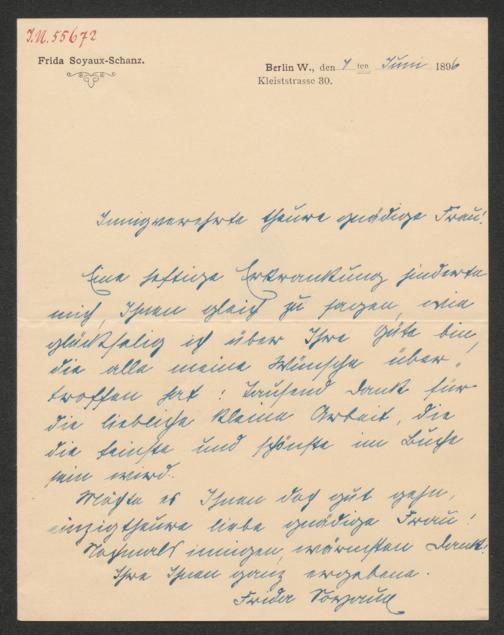 I.N. 55672
Frida Soyaux-Schanz.
Berlin W., den 7 ten Juni 1896
Kleiststrasse 30.
Innigverehrte theure gnädige Frau!
Eine heftige Erkrankung hinderte
mich, Ihnen gleich zu sagen, wie
glückselig ich über Ihre Güte bin,
die alle meine Wünsche über-
troffen hat! Tausend Dank für
die liebliche kleine Arbeit, die
die feinste und schönste im Buche
sein wird.
Möchte es Ihnen doch gut gehn,
einzigtheure liebe gnädige Frau!
Nochmals innigen, wärmsten Dank!
Ihre Ihnen ganz ergebene
Frida Soyaux